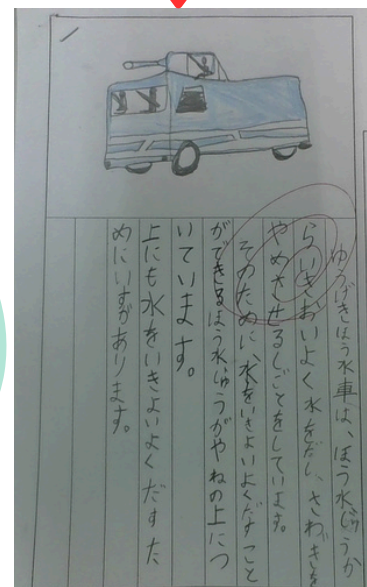 ゆうげきほう水車は、ほう水じゅうか
らいきおいよく水をだし、さわぎを
やめさせるしごとをしています。
そのために、水をいきよいよくだすこと
ができるほう水じゅうがやねの上につ
いています。
上にも水をいきよいよくだすた
めにいすがあります。